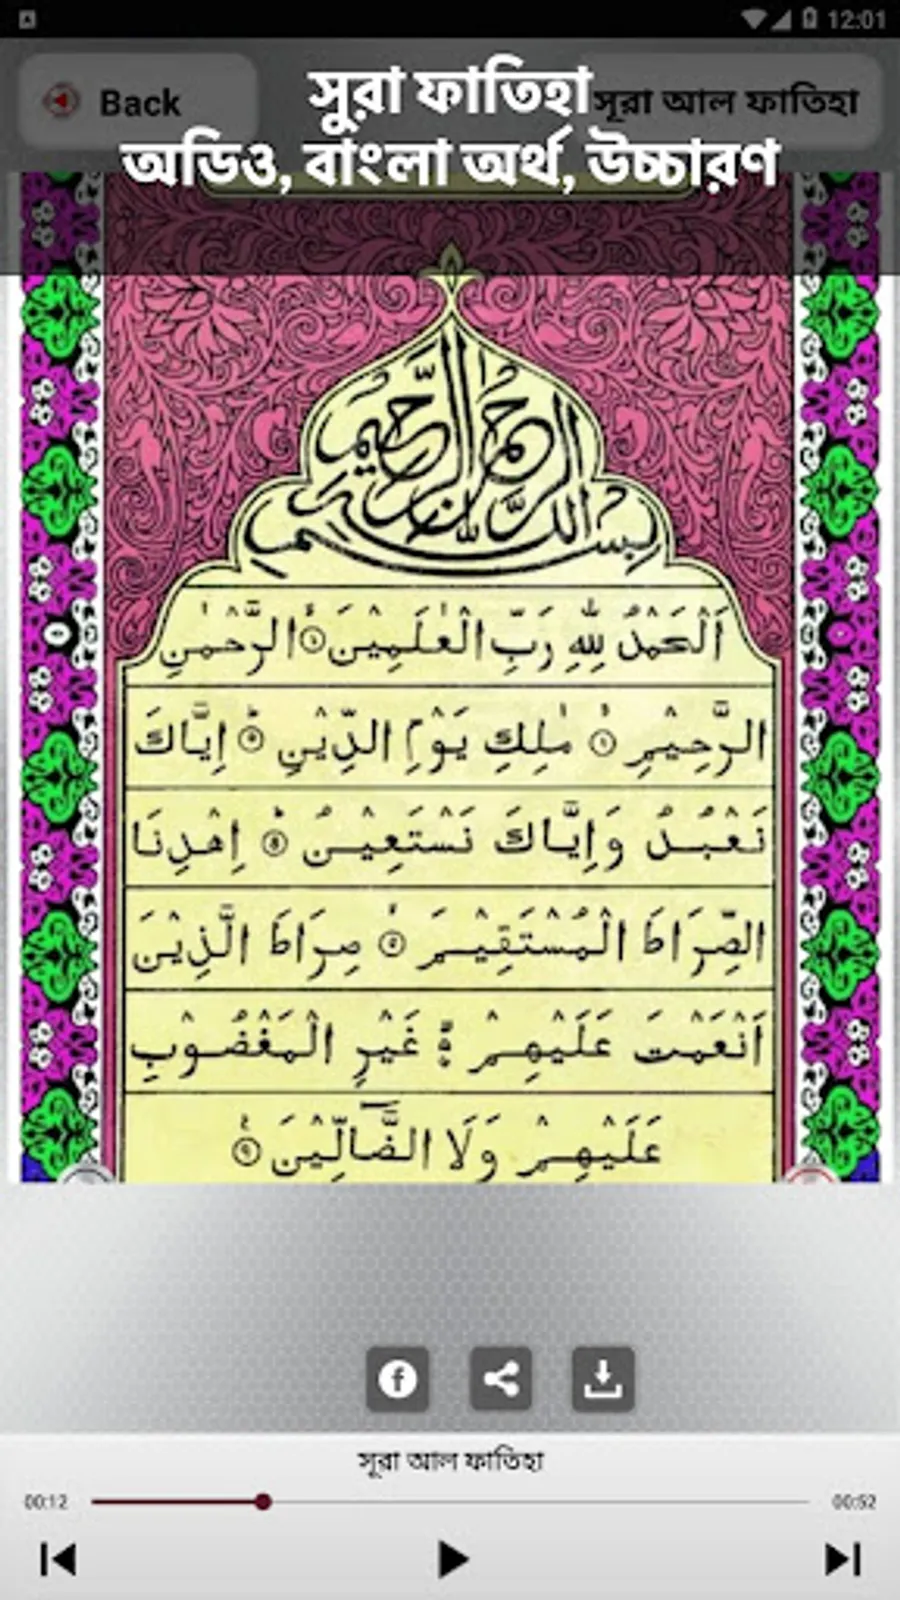 12:01
Back
সূরা আল ফাতিহা
সুরা ফাতিহা
অডিও, বাংলা অর্থ, উচ্চারণ
بِسْمِ اللهِ الرَّحْمٰنِ الرَّحِيْمِ
اَلْحَمْدُ لِلّٰهِ رَبِّ الْعٰلَمِيْنَ ۙ۝۱ الرَّحْمٰنِ
الرَّحِيْمِ ۙ۝۲ مٰلِكِ يَوْمِ الدِّيْنِ ؕ۝۳ اِيَّاكَ
نَعْبُدُ وَاِيَّاكَ نَسْتَعِيْنُ ؕ۝۴ اِهْدِنَا
الصِّرَاطَ الْمُسْتَقِيْمَ ۙ۝۵ صِرَاطَ الَّذِيْنَ
اَنْعَمْتَ عَلَيْهِمْ ۙ۬۝۶ غَيْرِ الْمَغْضُوْبِ
عَلَيْهِمْ وَلَا الضَّآلِّيْنَ ۠۝۷
সূরা আল ফাতিহা
00:12
00:52